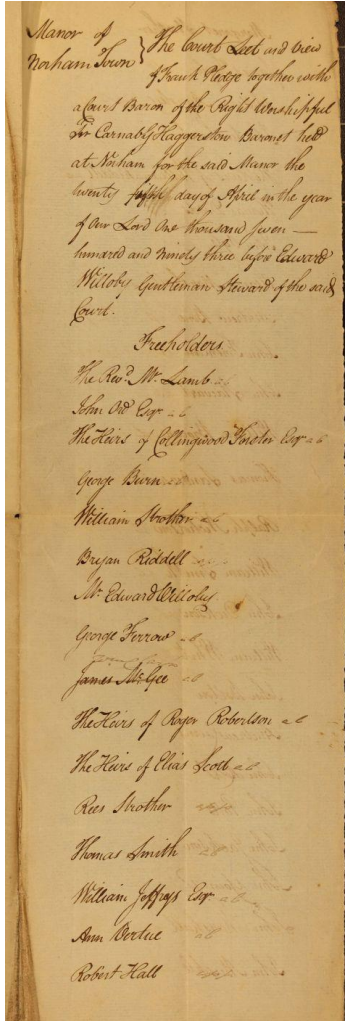 Manor of
Norham Town } The Court Leet and View
of Frank Pledge together with
a Court Baron of the Right Worshipful
Sir Carnaby Haggerston Baronet held
at Norham for the said Manor the
twenty fifth day of April in the year
of our Lord One thousand seven
hundred and ninety three before Edward
Willoby Gentleman Steward of the said
Court.
Freeholders
The Revd. Mr. Lamb ab
John Ord Esqr ab
The Heirs of Collingwood Forster Esqr ab
George Burn
William Strother ab
Bryan Riddell
Mr Edward Willoby
George Ferrow ab
James McGee ab
The Heirs of Roger Robertson ab
The Heirs of Elias Scott ab
Rees Strother
Thomas Smith
William Jeffreys Esqr ab
Ann Vertue ab
Robert Hall